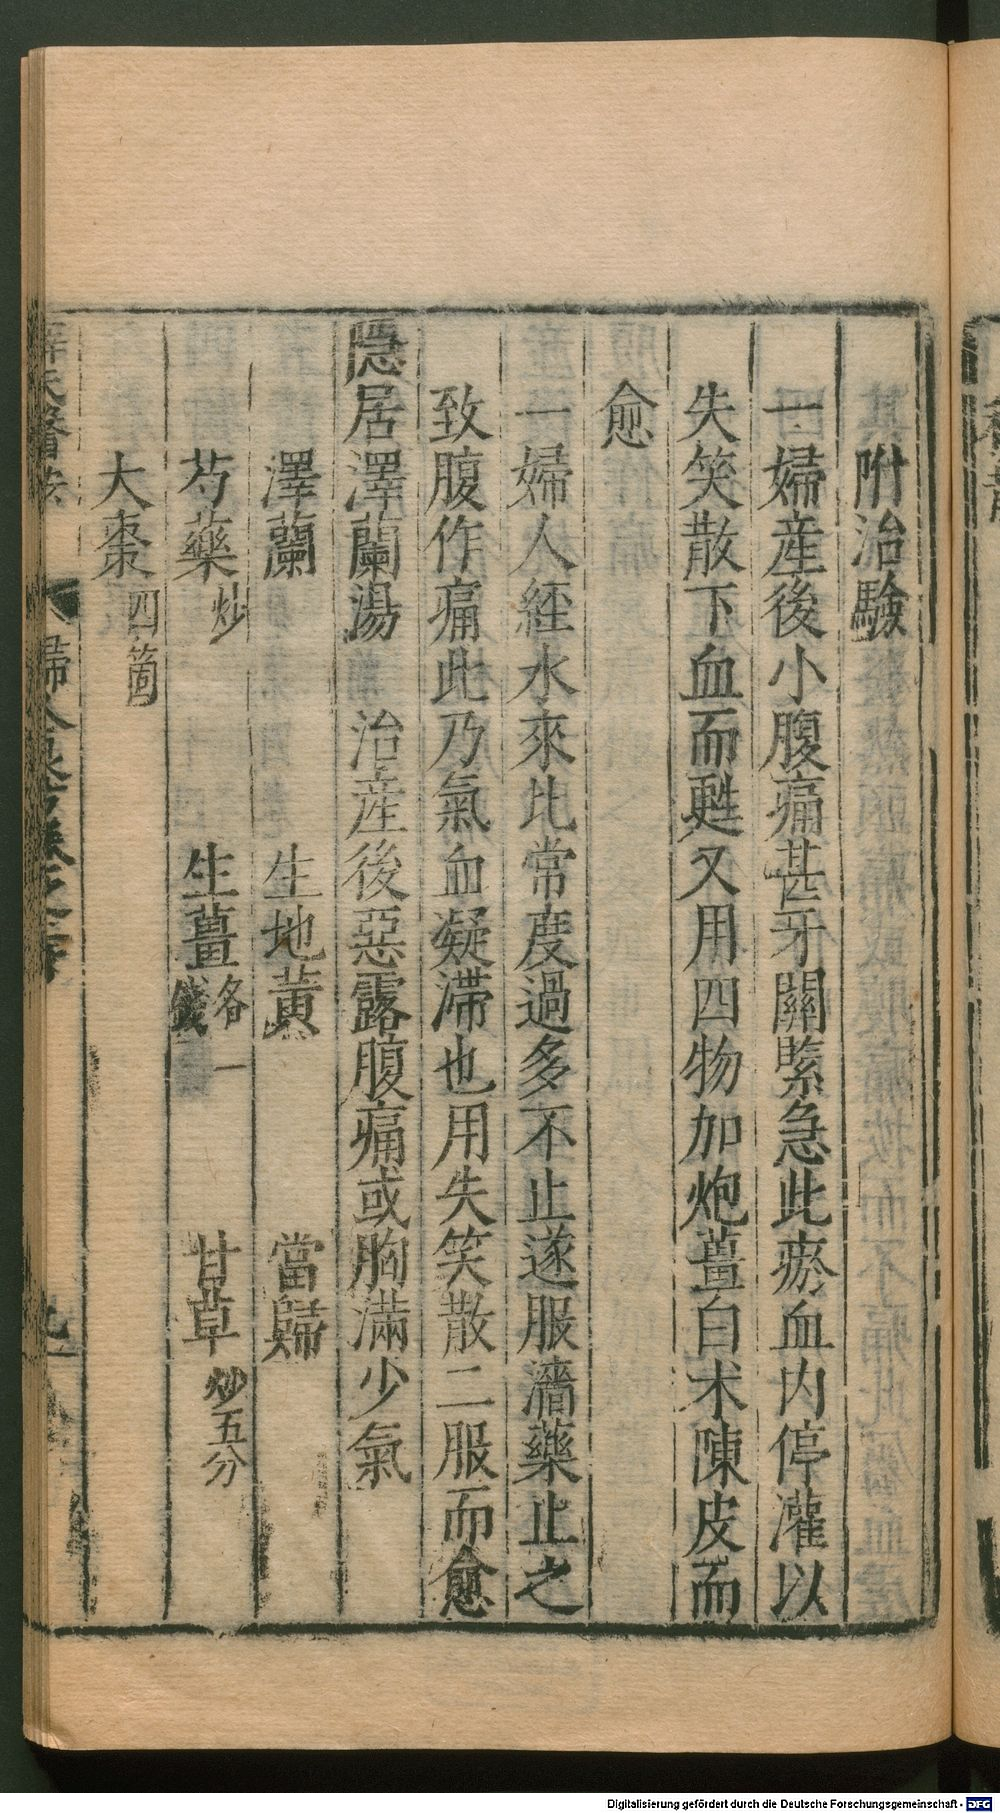 附治驗
一婦産後小腹痛甚牙關緊急此瘀血内停灌以
失笑散下血而甦又用四物加炮薑白术陳皮而
愈
一婦人經水來比常度過多不止遂服濇藥止之
致腹作痛此乃氣血凝滯也用失笑散二服而愈
隱居澤蘭湯 治産後惡露腹痛或胸滿少氣
澤蘭 生地黃 當歸
芍藥炒 生薑各一錢 甘草炒五分
大棗四箇
Digitalisierung gefördert durch die Deutsche Forschungsgemeinschaft - DFG